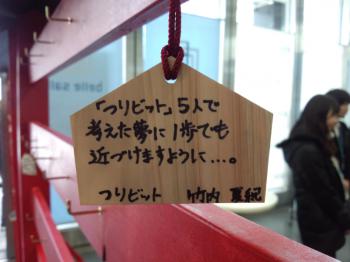 「つりビット」5人で
考えた夢に1歩でも
近づけますように…。
つりビット 竹内 夏紀
belle sa